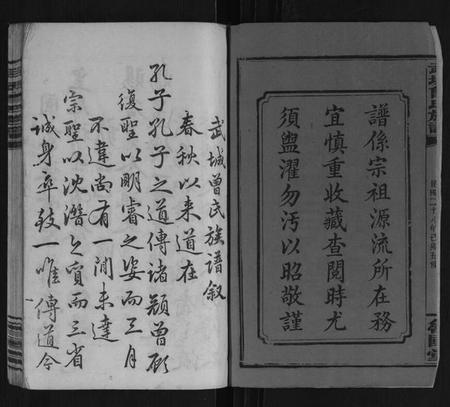 譜係宗祖源流所在務
宜慎重收藏查閱時尤
須盥濯勿污以昭敬謹
武城曾氏族譜敘
春秋以來道在
孔子孔子之道傳諸顏曾顧
復聖以明睿之姿而三月
不違尚有一間未達
宗聖以沈潛之質而三省
誠身卒致一唯傳道今